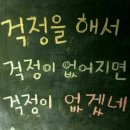 걱정을 해서
걱정이 없어지면
걱정이 없겠네